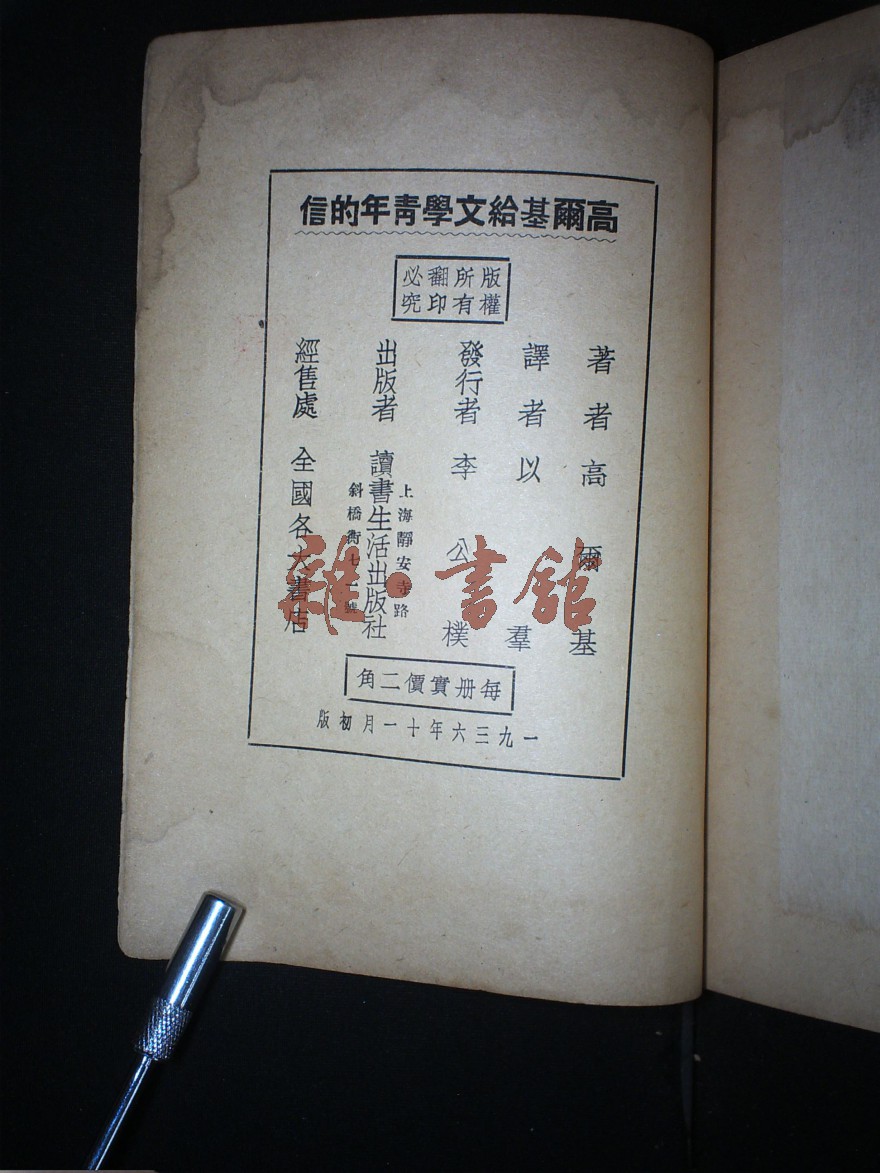 高爾基給文學青年的信
版權
所有
翻印
必究
著者 高爾基
譯者 以羣
發行者 李公樸
出版者 讀書生活出版社
上海靜安寺路
斜橋衖七一號
經售處 全國各大書店
每册實價二角
一九三六年十一月初版
雜·書館